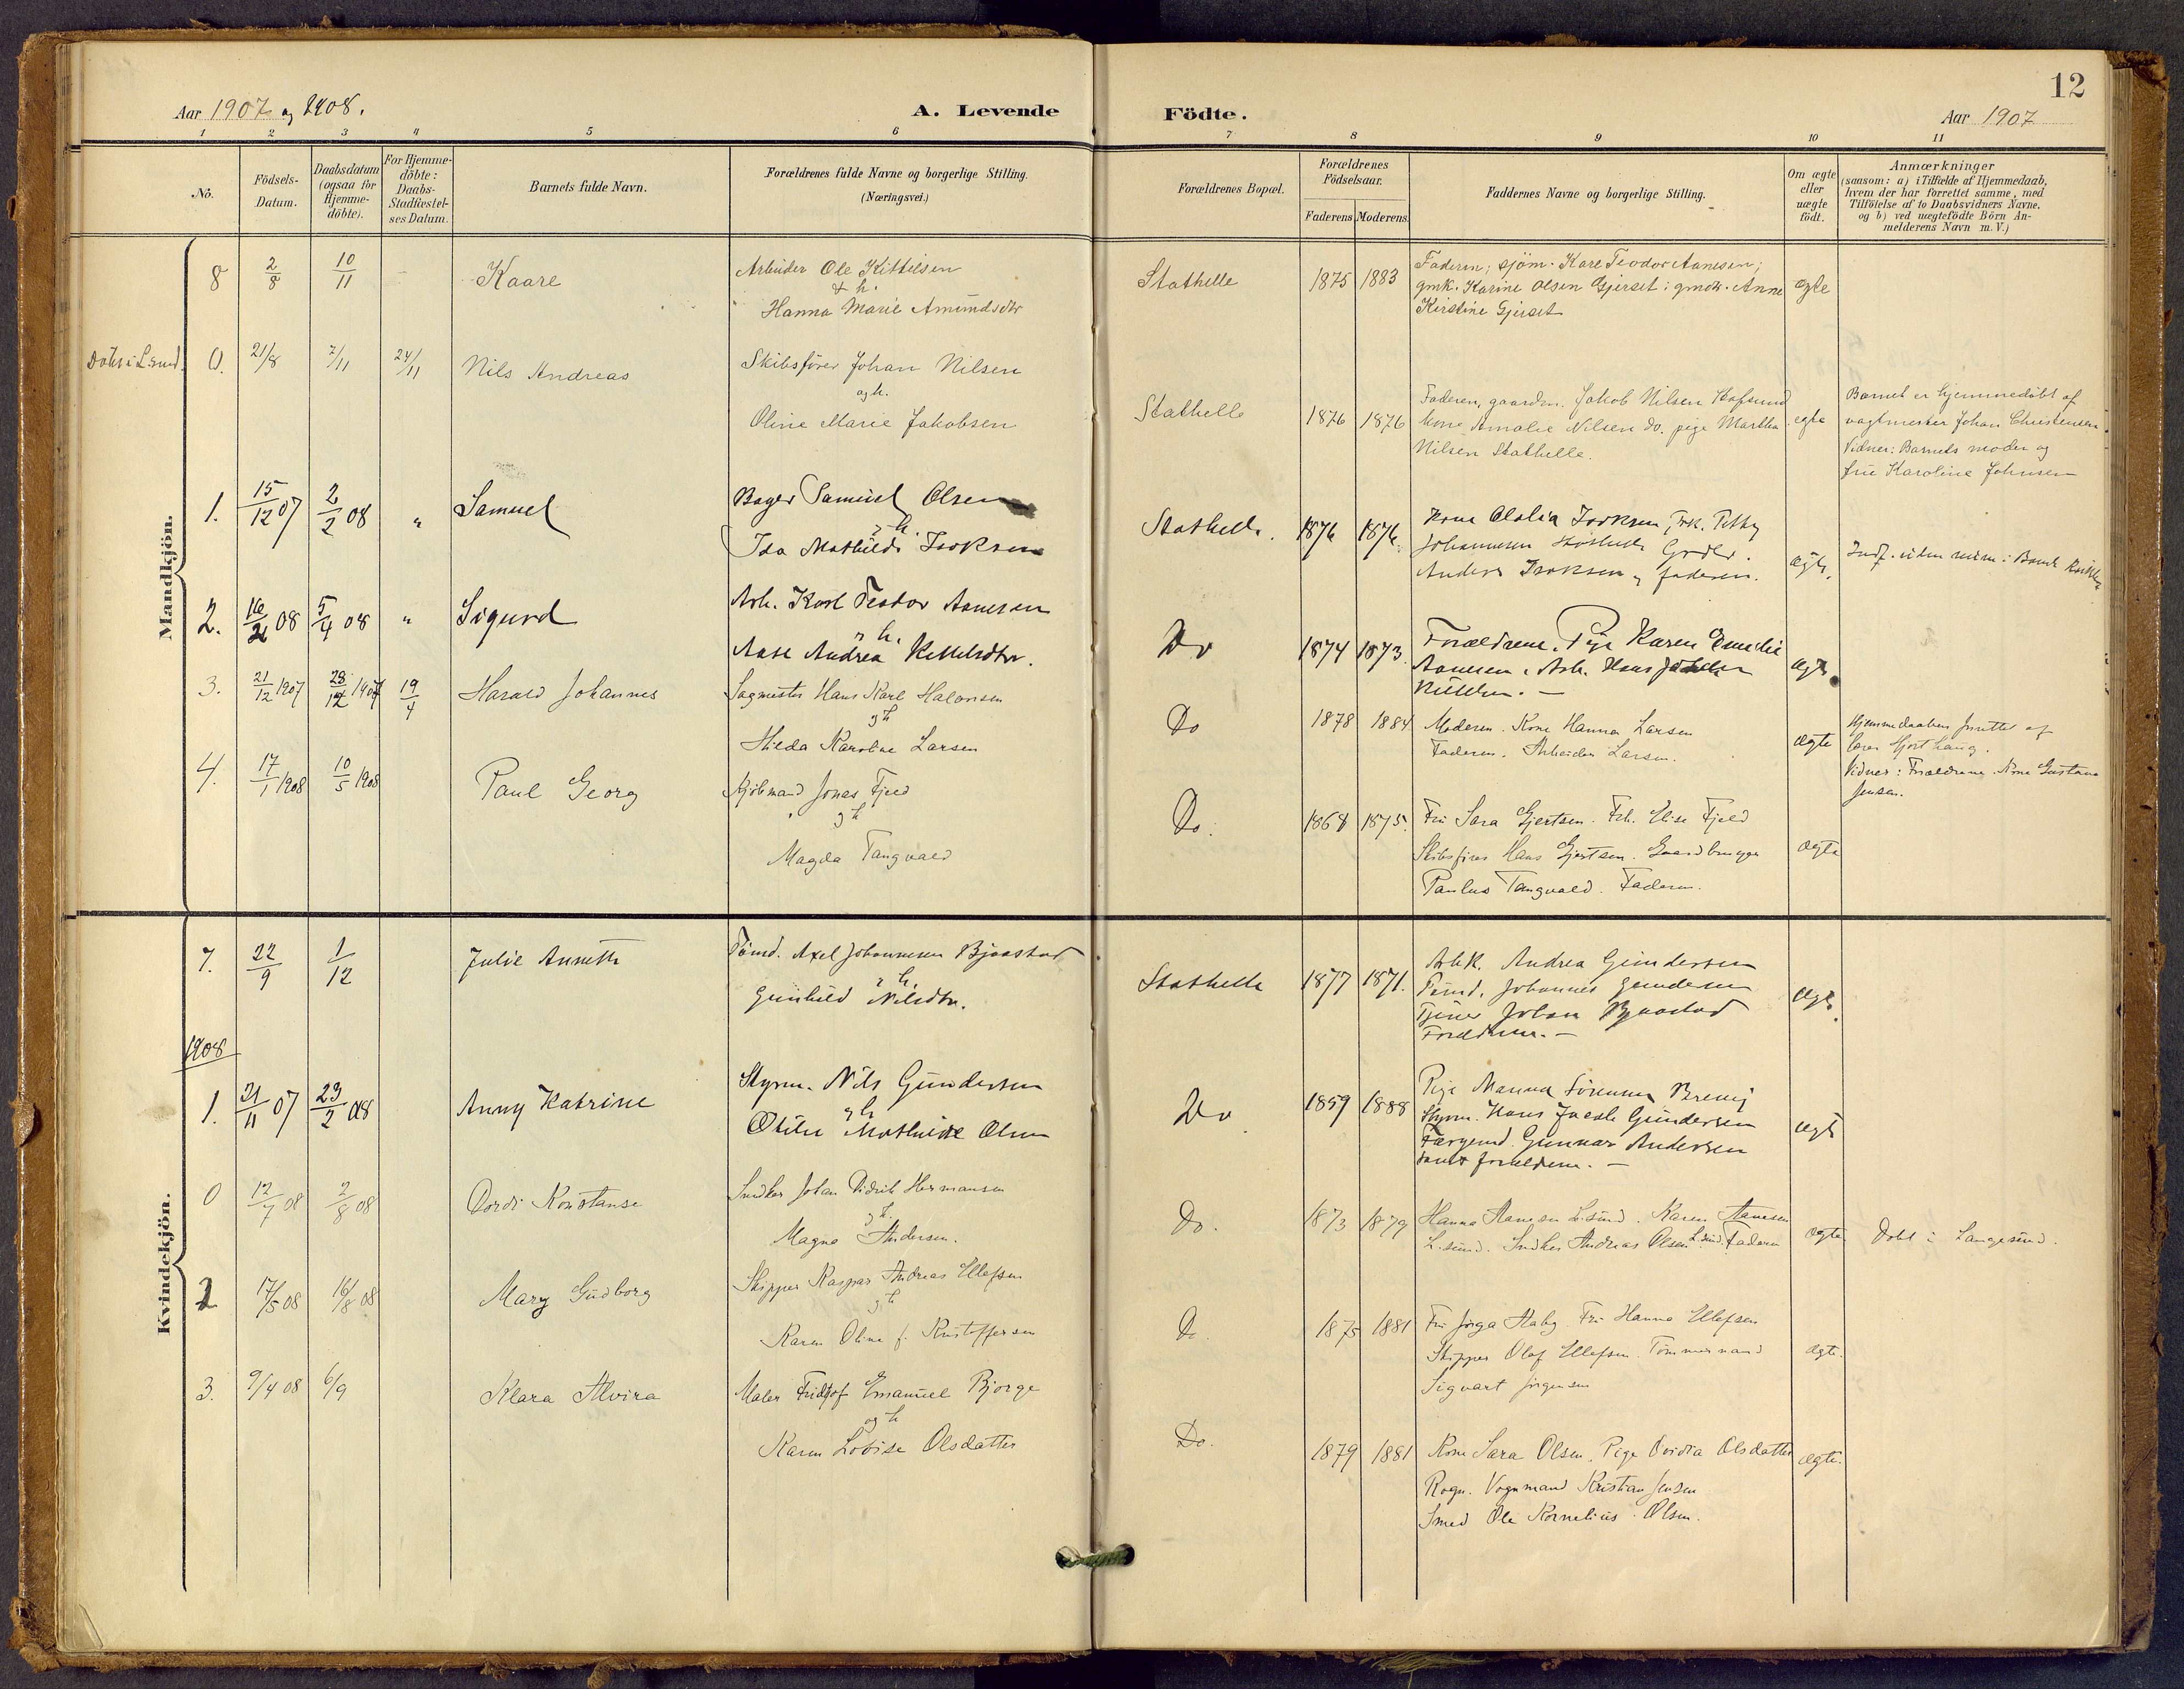 Aar 1907 og 1908.
A. Levende Födte.
12
Aar 1907
1 2 3 4 5 6 7 8 9 10 11
Nô.
Födsels-Datum.
Daabsdatum (ogsaa for Hjemme-döbte).
For Hjemme-döbte: Daabs-Stadfæstel-ses Datum.
Barnets fulde Navn.
Forældrenes fulde Navne og borgerlige Stilling. (Næringsvei.)
Forældrenes Bopæl.
Forældrenes Födselsaar.
Faderens Moderens.
Faddernes Navne og borgerlige Stilling.
Om ægte eller uægte födt.
Anmærkninger (saasom: a) i Tilfælde af Hjemmedaab, hvem der har forrettet samme, med Tilföielse af to Daabsvidners Navne, og b) ved uægtefödte Börn An-melderens Navn m. V.)
Mandkjön.
8 2/8 10/11 Kaare
Arbeider Ole Kittilsen
& h.
Hanna Marie Amundsdtr
Stathelle 1875 1883
Faderen; sjöm. Karl Teodor Aanesen;
gmk. Karine Olsen Gjerset; gmdtr. Anne
Kirstine Gjerset
ægte
Döbt i L.sund. 0. 21/8 7/11 24/11 Nils Andreas
Skibsfører Johan Nilsen
og h.
Oline Marie Jakobsen
Stathelle 1876 1876
Faderen, gaardm. Jakob Nilsen Hafsund
kone Amalie Nilsen do. pige Martha
Nilsen Stathelle.
ægte
Barnet er hjemmedöbt af
vagtmester Johan Christensen
Vidner: Barnets moder og
frue Karoline Johnsen
1. 15/12 07 2/2 08 " Samuel
Bager Samuel Olsen
& h.
Ida Mathilde Isaksen
Stathelle. 1876 1876.
Kone Isaksen, Frk.
Johannesen Stathelle
Anders Isaksen og faderen.
ægte.
2. 16/2 08 5/4 08 " Sigurd
Arb. Karl Teodor Aanesen
& h.
Aase Andrea Kittelsdtr.
Do 1874 1873.
Forældrene, Pige Karen Emilie
Aanesen, Arb. Hans
ægte
3. 21/12 1907 28/12 1907 19/4 Harald Johannes
Sagmester Hans Karl Halvorsen
og h
Hilda Karoline Larsen
Do 1878 1884
Moderen. Kone Hanna Larsen
Faderen. Arbeider Larsen.
ægte
Hjemmedaaben forrettet af
lærer Hjorthaug.
Vidner: Forældrene. Kone Gustava
Jensen.
4. 17/1 1908 10/5 1908 Paul Georg
Kjöbmand Jonas Fjeld
og h
Magda Tangvald
Do. 1868 1875.
Fru Sara Gjertsen. Frk. Elise Fjeld
Skibsfører Hans Gjertsen. Gaardbruger
Paulus Tangvald. Faderen.
ægte
Kvindekjön.
7. 22/9 1/12 Julie Annette
Tömd. Axel Johannesen Bjaastad
& h.
Gunhild Nilsdtr.
Stathelle 1877 1871.
Arbk. Andrea Gundersen
Tömd. Johannes Gundersen
Tjener Johan Bjaastad
Forældrene.
ægte.
1908
1. 21/11 07 23/2 08 Anny Katrine
Styrm. Nils Gundersen
& h
Otilie Mathilde Olsen
Do 1859 1888
Pige Manna Sörensen Brevig
Styrm. Hans Jacob Gundersen
Færgemd. Gunnar Andersen
samt forældrene.
ægte
0 12/7 08 2/8 08 Dordi Konstanse
Snedker Johan Didrik Hermansen
og h.
Magna Andersen.
Do. 1873 1879
Hanna Aanesen L.sund. Karen Aanesen
L.sund. Snedker Andreas Olsen L.sund. Faderen
ægte
Döbt i Langesund.
2 17/5 08 16/8 08 Mary Gudborg
Skipper Kaspar Andreas Ellefsen
og h
Karen Oline f. Kristoffersen
Do 1875 1881
Fru Jörga Aaby. Fru Hanna Ellefsen
Skipper Olaf Ellefsen. Tömmermand
Sigvart Jörgensen
ægte.
3. 9/4 08 6/9 Klara Alvira
Maler Fridtjof Emanuel Bjorge
og h
Karen Lovise Olsdatter
Do. 1879 1881
Kone Sara Olsen. Pige Ovidia Olsdatter
Rogn. Vognmand Kristian Jensen
Smed Ole Kornelius Olsen.
ægte.